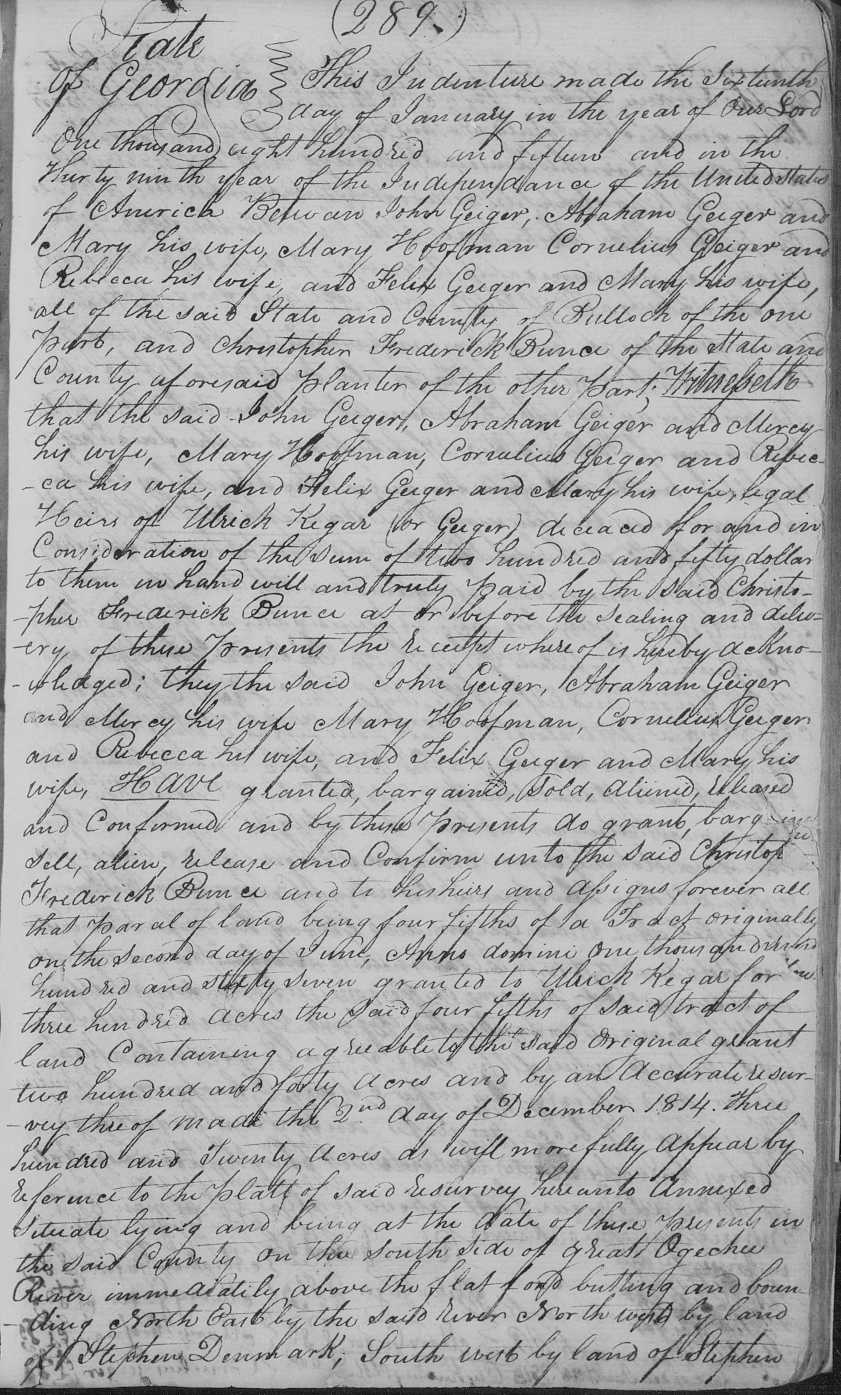 (289.)
State
of Georgia This Indenture made the Sixteenth
day of January in the year of Our Lord
One thousand eight hundred and fifteen and in the
Thirty ninth year of the Independance of the United States
of America Between John Geiger, Abraham Geiger and
Mary his wife, Mary Hoofman Cornelius Geiger and
Rebecca his wife, and Felix Geiger and Mary his wife,
all of the said State and County of Bulloch of the one
Part, and Christopher Frederick Bunce of the State and
County aforesaid Planter of the other Part; Witnesseth
that the said John Geiger, Abraham Geiger and Mercy
his wife, Mary Hoofman, Cornelius Geiger and Rebec-
-ca his wife, and Felix Geiger and Mary his wife, legal
Heirs of Ulrick Kegar (or Geiger) deceased for and in
Consideration of the sum of two hundred and fifty dollar
to them in hand well and truly paid by the said Christo-
-pher Frederick Bunce at or before the sealing and deliv-
-ery of these Presents the receipt whereof is hereby ackno-
-wledged; they the said John Geiger, Abraham Geiger
and Mercy his wife Mary Hoofman, Cornelius Geiger
and Rebecca his wife, and Felix Geiger and Mary his
wife, Have granted, bargained, sold, aliened, released
and Confirmed and by these Presents do grant, bargain
sell, alien, release and Confirm unto the said Christop
Frederick Bunce and to his heirs and assigns forever all
that parcal of land being four fifths of a Tract originally
on the second day of June, Anno domini One thousand seven
hundred and sixty seven granted to Ulrick Kegar for
three hundred acres the said four fifths of said tract of
land Containing agreeable to the said original grant
two hundred and forty acres and by an Accurate resur-
-vey thereof made the 2nd day of December 1814. three
hundred and Twenty acres as will more fully appear by
reference to the platt of said resurvey hereunto Annexed
situate lying and being at the date of these presents in
the said County on the south side of great Ogechee
River immediatily above the flat ford butting and boun-
-ding North East by the said River North west by land
of Stephen Denmark, South west by land of Stephen